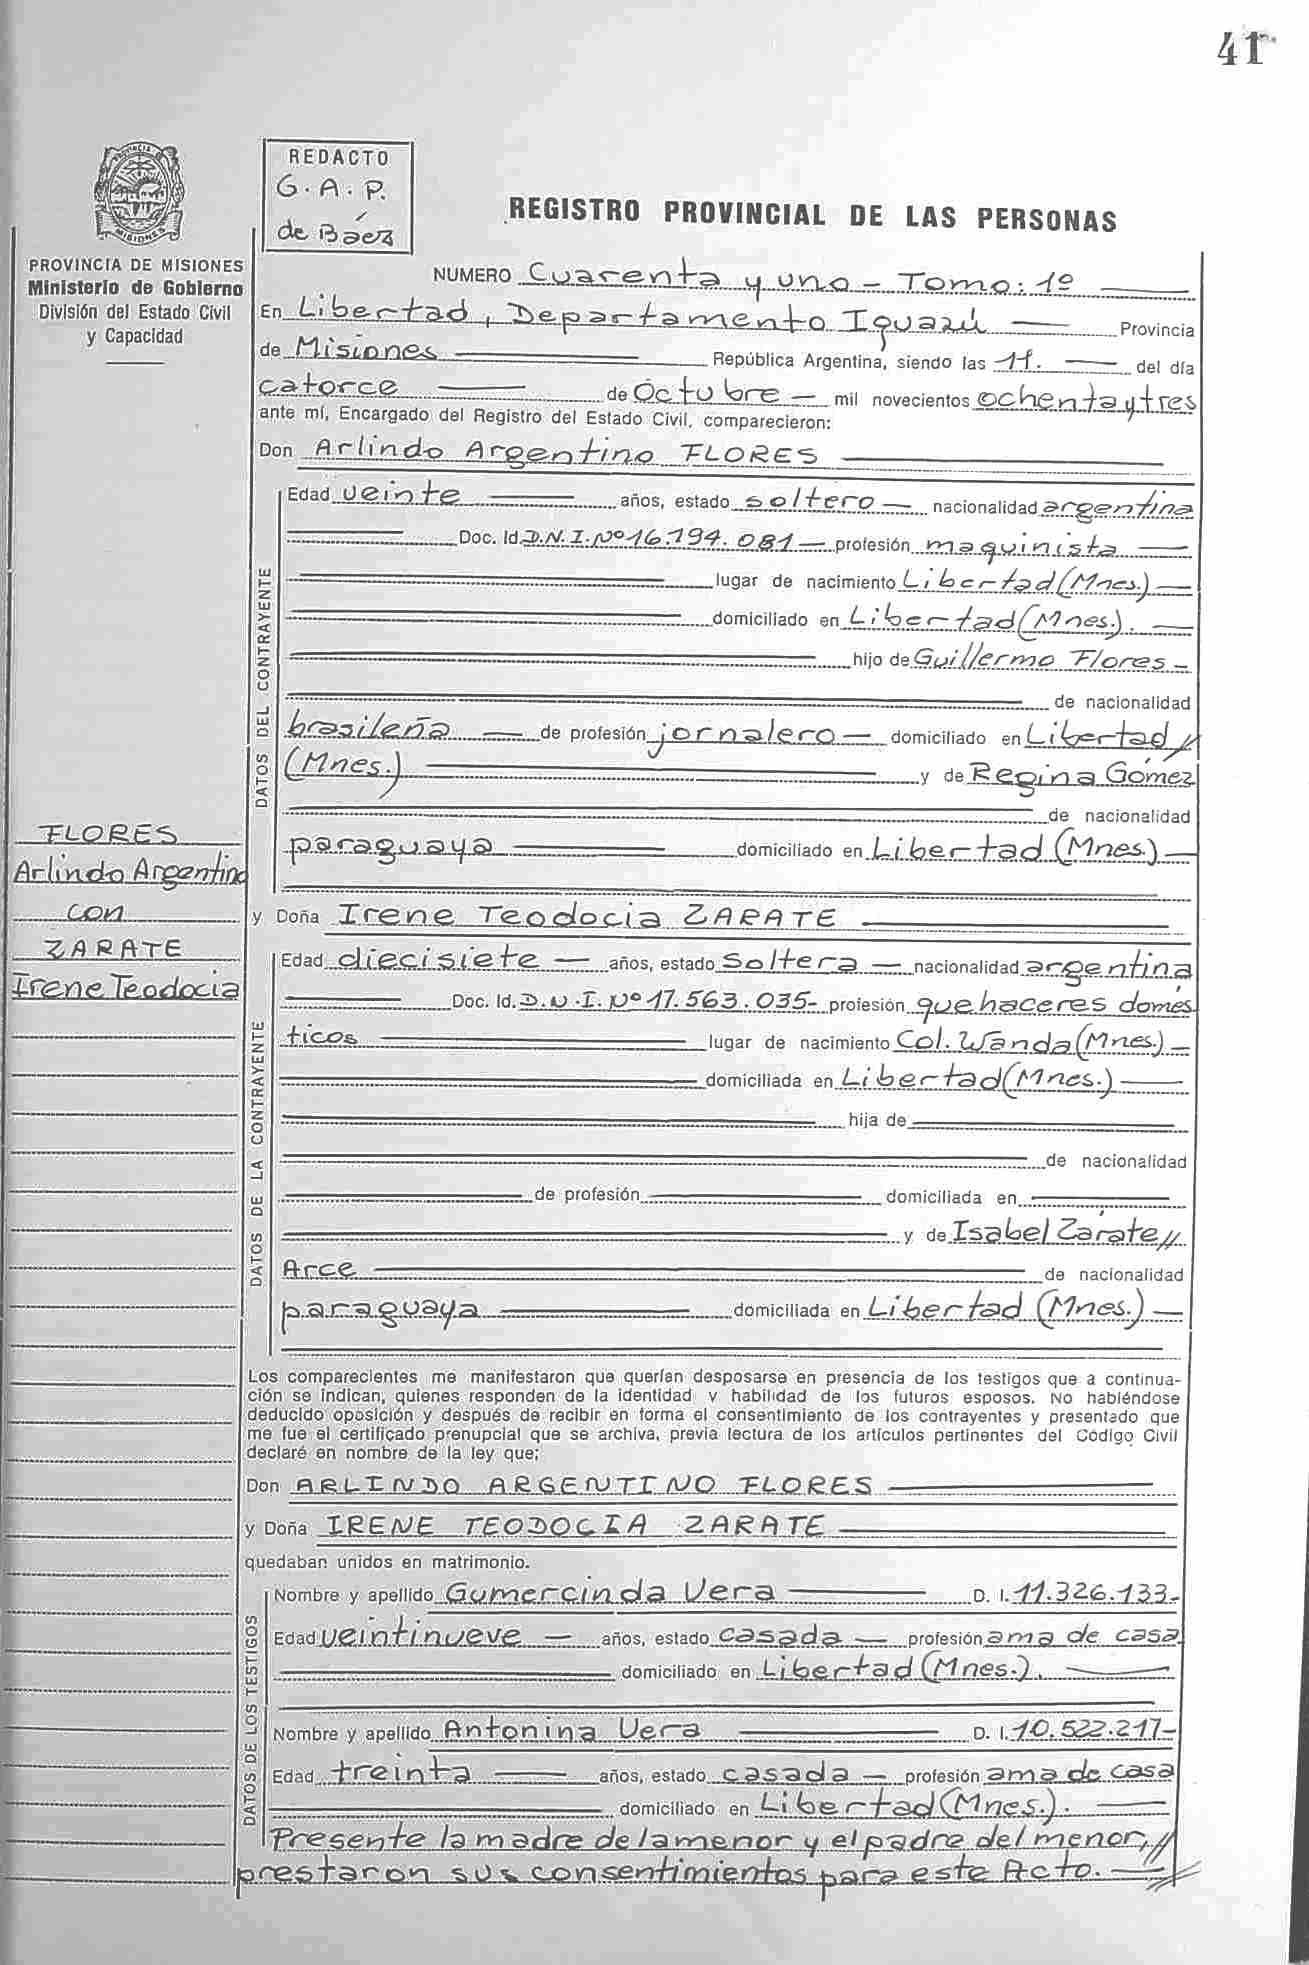 41
REDACTO
G. A. P.
de Báez
PROVINCIA DE MISIONES
REGISTRO PROVINCIAL DE LAS PERSONAS
PROVINCIA DE MISIONES
Ministerio de Gobierno
División del Estado Civil
y Capacidad
NUMERO Cuarenta y uno - Tomo: 1º
En Libertad, Departamento Iguazú Provincia
de Misiones República Argentina, siendo las 11. del día
catorce de Octubre - mil novecientos ochenta y tres
ante mí, Encargado del Registro del Estado Civil, comparecieron:
Don Arlindo Argentino FLORES
DATOS DEL CONTRAYENTE
Edad veinte años, estado soltero - nacionalidad argentina
Doc. Id. D.N.I. Nº 16.194.081 - profesión maquinista
lugar de nacimiento Libertad (Mnes.)
domiciliado en Libertad (Mnes.).
hijo de Guillermo Flores -
de nacionalidad
brasileña - de profesión jornalero - domiciliado en Libertad //
(Mnes.) y de Regina Gómez
de nacionalidad
paraguaya domiciliado en Libertad (Mnes.) -
FLORES
Arlindo Argentino
con
ZARATE
Irene Teodocia
y Doña Irene Teodocia ZARATE
DATOS DE LA CONTRAYENTE
Edad diecisiete - años, estado Soltera - nacionalidad argentina
Doc. Id. D.N.I. Nº 17.563.035- profesión que haceres domés
ticos lugar de nacimiento Col. Wanda (Mnes.) -
domiciliada en Libertad (Mnes.)
hija de
de nacionalidad
de profesión domiciliada en
y de Isabel Zárate //
Arce de nacionalidad
paraguaya domiciliada en Libertad (Mnes.) -
Los comparecientes me manifestaron que querían desposarse en presencia de los testigos que a continua-
ción se indican, quienes responden de la identidad y habilidad de los futuros esposos. No habiéndose
deducido oposición y después de recibir en forma el consentimiento de los contrayentes y presentado que
me fue el certificado prenupcial que se archiva, previa lectura de los artículos pertinentes del Código Civil
declaré en nombre de la ley que;
Don ARLINDO ARGENTINO FLORES
y Doña IRENE TEODOCIA ZARATE
quedaban unidos en matrimonio.
DATOS DE LOS TESTIGOS
Nombre y apellido Gumercinda Vera D. I. 11.326.133-
Edad veintinueve - años, estado casada - profesión ama de casa
domiciliado en Libertad (Mnes.).
Nombre y apellido Antonina Vera D. I. 10.522.217-
Edad treinta años, estado casada - profesión ama de casa
domiciliado en Libertad (Mnes.).
Presente la madre de la menor y el padre del menor, //
prestaron sus consentimientos para este Acto.